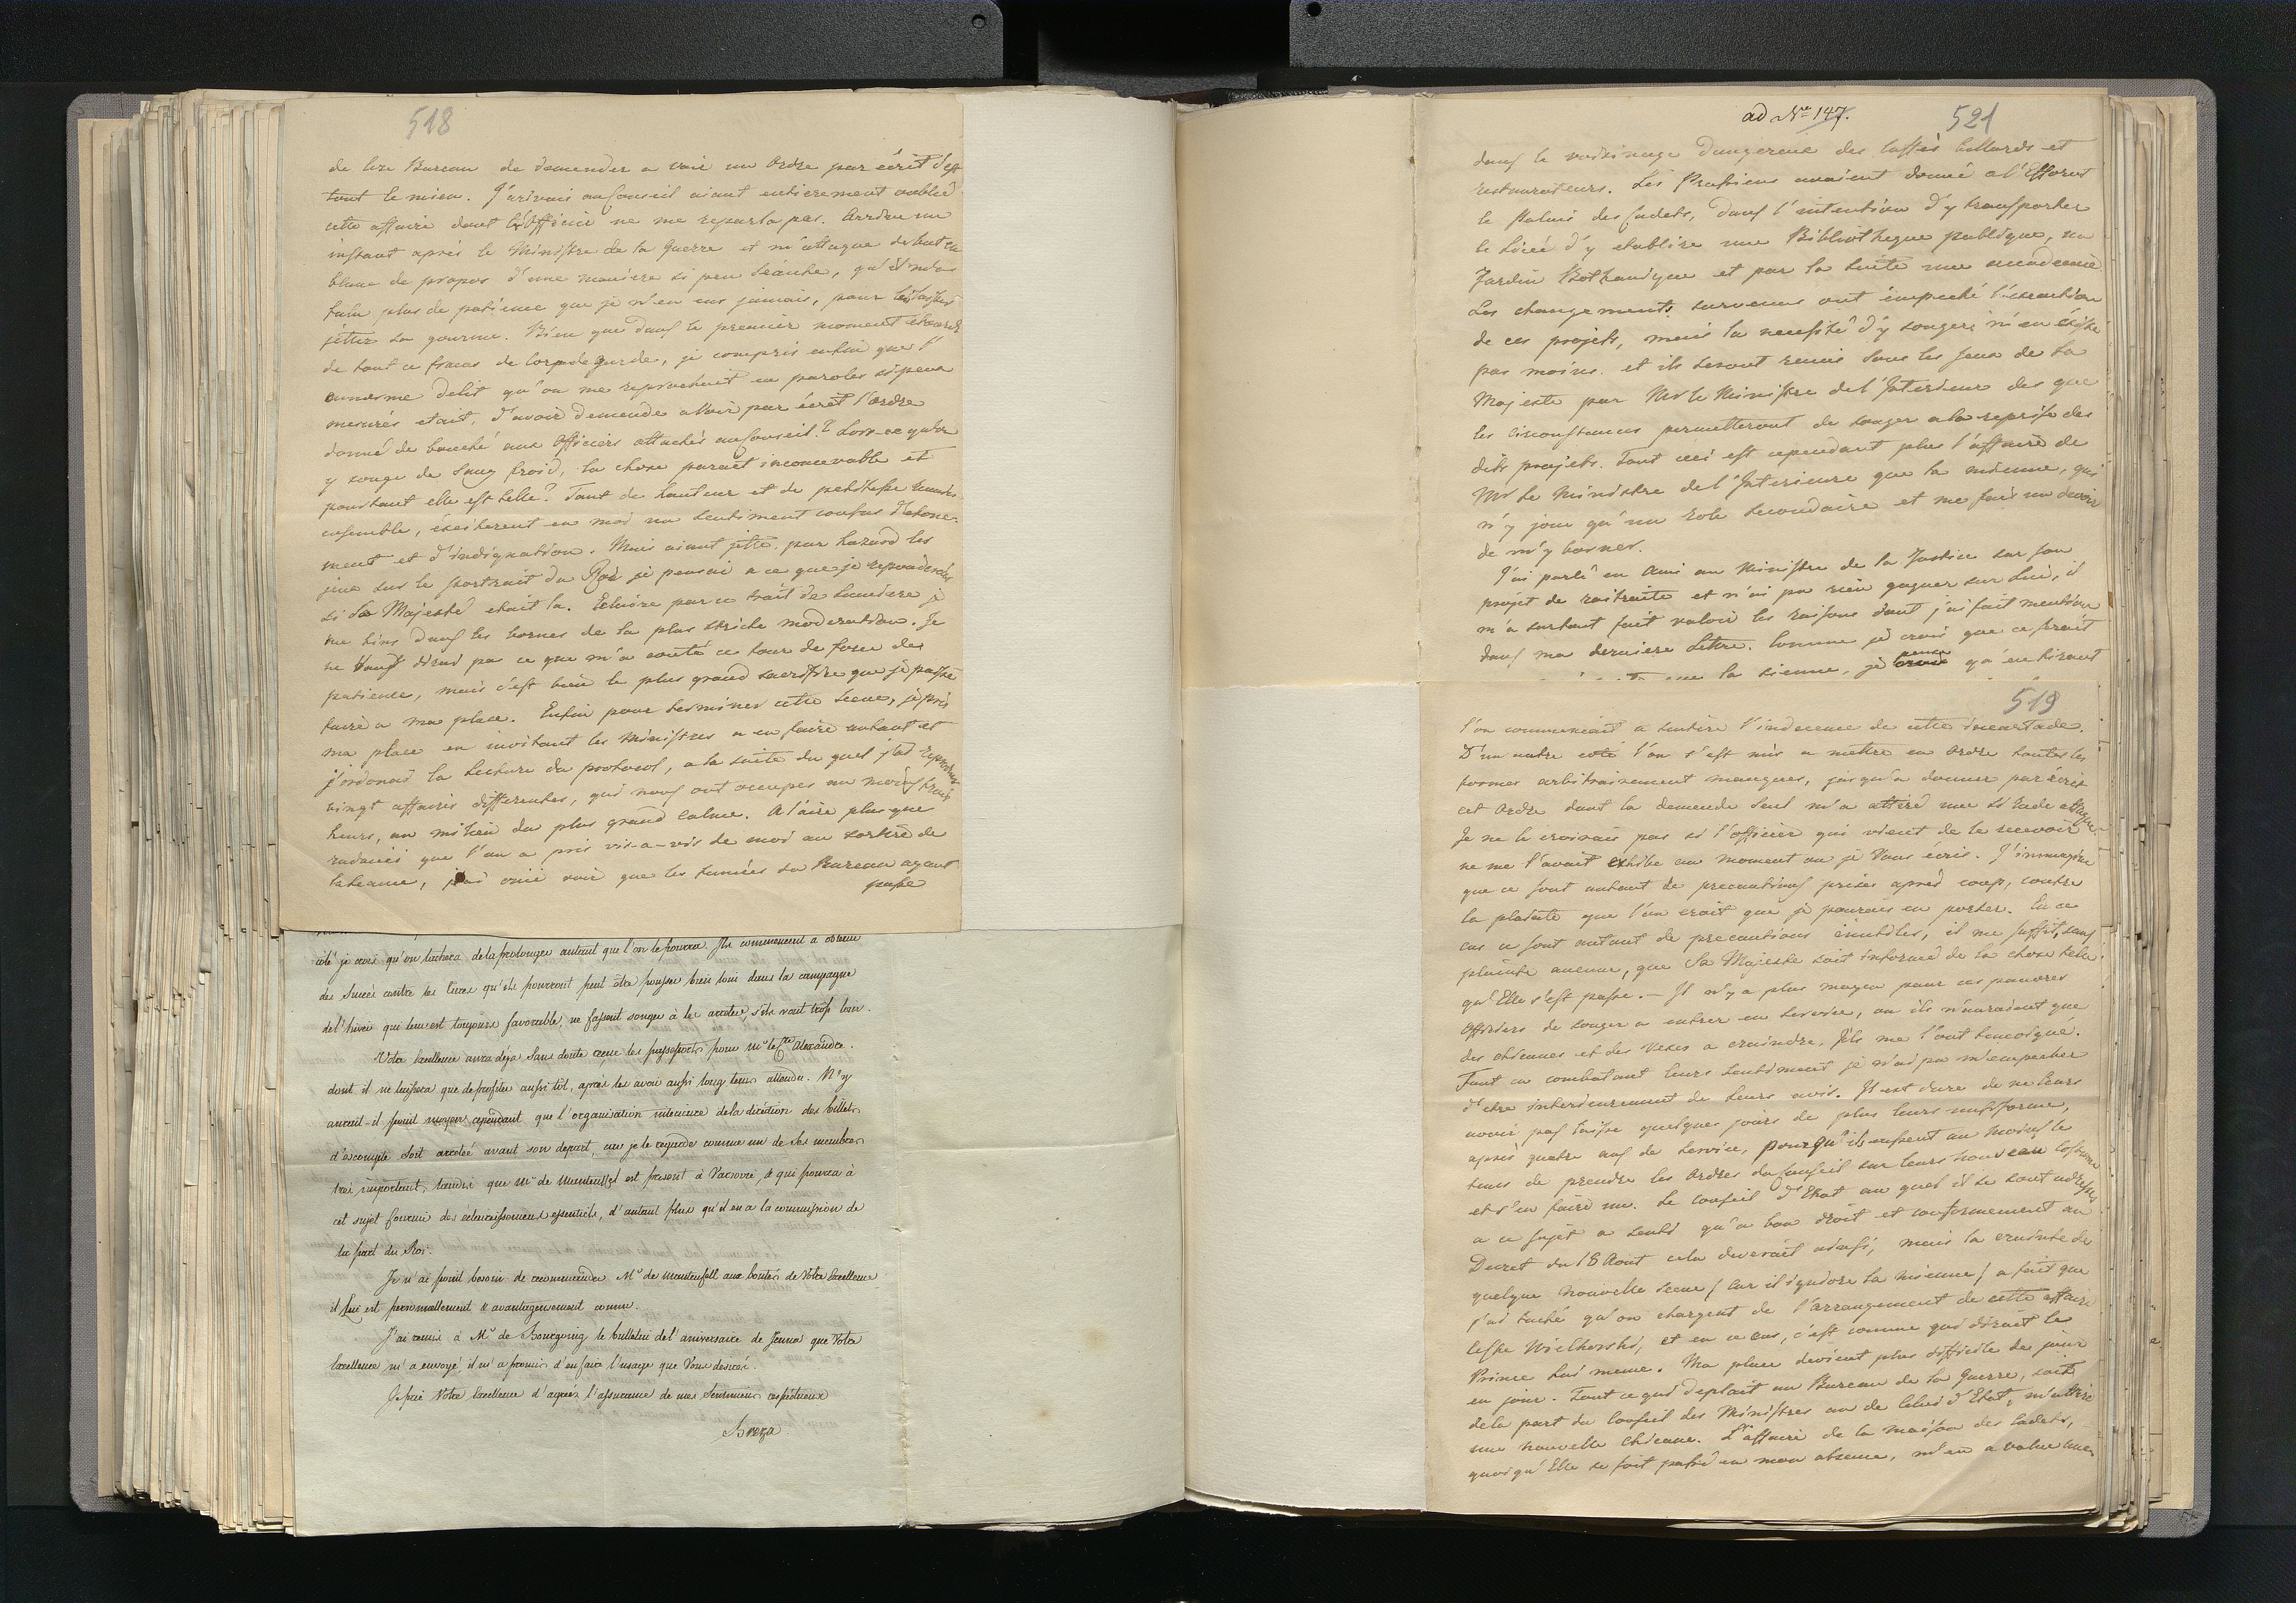 518
de leur Bureau de demander a voir un Ordre par écrit d'eff
tout le mien. J'arivais au Conseil aiant entierement oublié
cette affaire dont l'Officier ne me reparla pas. Arrive un
instant aprés le Ministre de la Guerre et m'attaque de but en
blanc de propos d'une maniere si peu séante, qu'il m'a
falu plus de patience que je n'en eus jamais, pour
jetter sa gourme. Bien que dans le premier moment étourdi
de tout ce fracas de Corps de garde, je compris enfin que l'
enorme delit qu'on me reprochait en paroles si peu
mesurés etait, d'avoir demendé a voir par écrit l'ordre
donné de bouche aux Officiers attachés au Conseil? Lors-ce qu'on
y songe de sang froid, la chose parait inconcevable et
pourtant elle est telle? Tant de hauteur et de petitesse reunies
ensemble, éxciterent en moi un sentiment confus d'etone-
ment et d'indignation. Mais aiant jetté par hazard les
jeux sur le portrait du Roi je pensai a ce que je reponderais
si Sa Majesté etait la. Eclairé par ce trait de Lumiere je
me tins dans les bornes de la plus stricte moderation. Je
ne Vous dirai pas ce que m'a couté ce tour de force de
patience, mais c'est bien le plus grand sacrifice que je pusse
faire a ma place. Enfin pour terminer cette scene, je pris
ma place en invitant les Ministres a en faire autant et
j'ordonai la lecture du protocol, a la suite du quel j'ai
vingt affaires differentes, qui nous ont occupés au moins trois
heures, au milieu du plus grand calme. A l'air plus que
radouci que l'on a pris vis-a-vis de moi au sortir de
la seance, j'ai crue voir que les fumées du Bureau ayant
passe
coté je crois qu'on tachera de la prolonger autant que l'on le pourra. Ils commencent a obtenir
des succés contre les Turcs qu'ils pourront peut être pousser bien loin dans la campagne
de l'hiver qui leur est toujours favorable, ne fassent songer à les arreter, s'ils vont trop loin.
Votre Excellence aura déja sans doute reçue les passeports pour Mr le Cte Alexandre.
dont il ne laissera que de profiter aussi tôt, après les avoir aussi long tems attendu. N'y
aurait-il point moyen cependant que l'organisation interieure de la direction des billets
d'escompte soit arretée avant son depart, car je le regarde comme un de ses membres
trés important, tandis que Mr de Manteuffel est present à Varsovie, & qui pourra à
cet sujet fournir des eclaircissemens essentiels, d'autant plus qu'il en a la commission de
la part du Roi.
Je n'ai point besoin de recommender Mr de Manteufell aux bontés de Votre Excellence
il Lui est personnellement & avantageusement connu.
J'ai remis à Mr de Bourgoing le bulletin de l'aniversaire de Jenna que Votre
Excellence m'a envoyé, il m'a promis d'en faire l'usage que Vous desirés.
Je prie Votre Excellence d'agréer l'assurance de mes Sentimens respectueux
Breza
ad No 147.
521
dans le voisinage dangereux des Caffés billards et
restaurateurs. Les Prussiens avaient donné a l'Efforat
le Palais des Cadets, dans l'intention d'y transporter
le Liceé d'y etablire une Bibliotheque publique, un
Jardin Bothanique et par la suite une accademie
Les changements survenus ont empeché l'execution
de ces projets, mais la necessité d'y songer n'en éxiste
pas moins. et ils seront remis sous les jeux de Sa
Majesté par Mr le Ministre de l'Interieur des que
les circonstances permetteront de songer a la reprise des
dits projets. Tout ceci est cependant plus l'affaire de
Mr le Ministre de l'Interieure que la mienne, qui
n'y joue qu'un role secondaire et me fais un devoir
de m'y borner.
J'ai parlé en Ami au Ministre de la Justice sur son
projet de raitraite et n'ai pu rien gagner sur Lui, il
m'a surtout fait valoir les raisons dont j'ai fait mention
dans ma derniere Lettre. Comme je crois que ce serait
que la sienne, je pense qu'en tirant
519
l'on commencait a sentire l'indecence de cette incartade.
D'un autre coté l'on s'est mis a mettre en Ordre toutes les
formes arbitrairement manquées, jusqu'a donner par écrit
cet Ordre dont la demende seul m'a attiré une si rude attaque
Je ne le croirais pas si l'officier qui vient de le recevoir
ne me l'avait exhibé au moment ou je Vous écris. J'immagine
que ce sont autant de precautions prises aprés coup, contre
la plainte que l'on croit que je pourais en porter. En ce
cas ce sont autant de precautions inutiles, il me suffit, sans
plainte aucune, que Sa Majesté soit informé de la chose telle
qu'Elle s'est passe. — Il n'y a plus moyen pour ces pauvres
Officiers de songer a entrer en service, ou ils n'auraient que
des chicanes et des vexes a craindre. Ils me l'ont temoigné.
Tout en combatant leurs sentiment je n'ai pu m'empecher
d'etre interieurement de leurs avis. Il est dure de ne leurs
avoir pas laisse quelques jours de plus leurs uniforme,
aprés quatre ans de service, pourqu'ils eussent au moins le
tems de prendre les Ordres du Conseil sur leurs nouveau Costume
et s'en faire un. Le Conseil d'Etat au quel il se sont adressés
a ce sujet a senti qu'a bon droit et conformement au
Decret du 18 Aout cela deverait ainsi, mais la crainte de
quelque nouvelle scene (car il ignore la mienne) a fait que
j'ai taché qu'on chargent de l'arrangement de cette affaire
Wielhorski, et en ce cas, c'est comme qui dirait le
Prince Lui meme. Ma place devient plus difficile de jour
en jour. Tout ce qui deplait au Bureau de la Guerre, soit
de la part du Conseil des Ministres ou de Celui d'Etat, m'attire
une nouvelle Chicane. L'affaire de la maison des Cadets,
quoiqu'Elle se soit passé en mon absence, m'en a value une